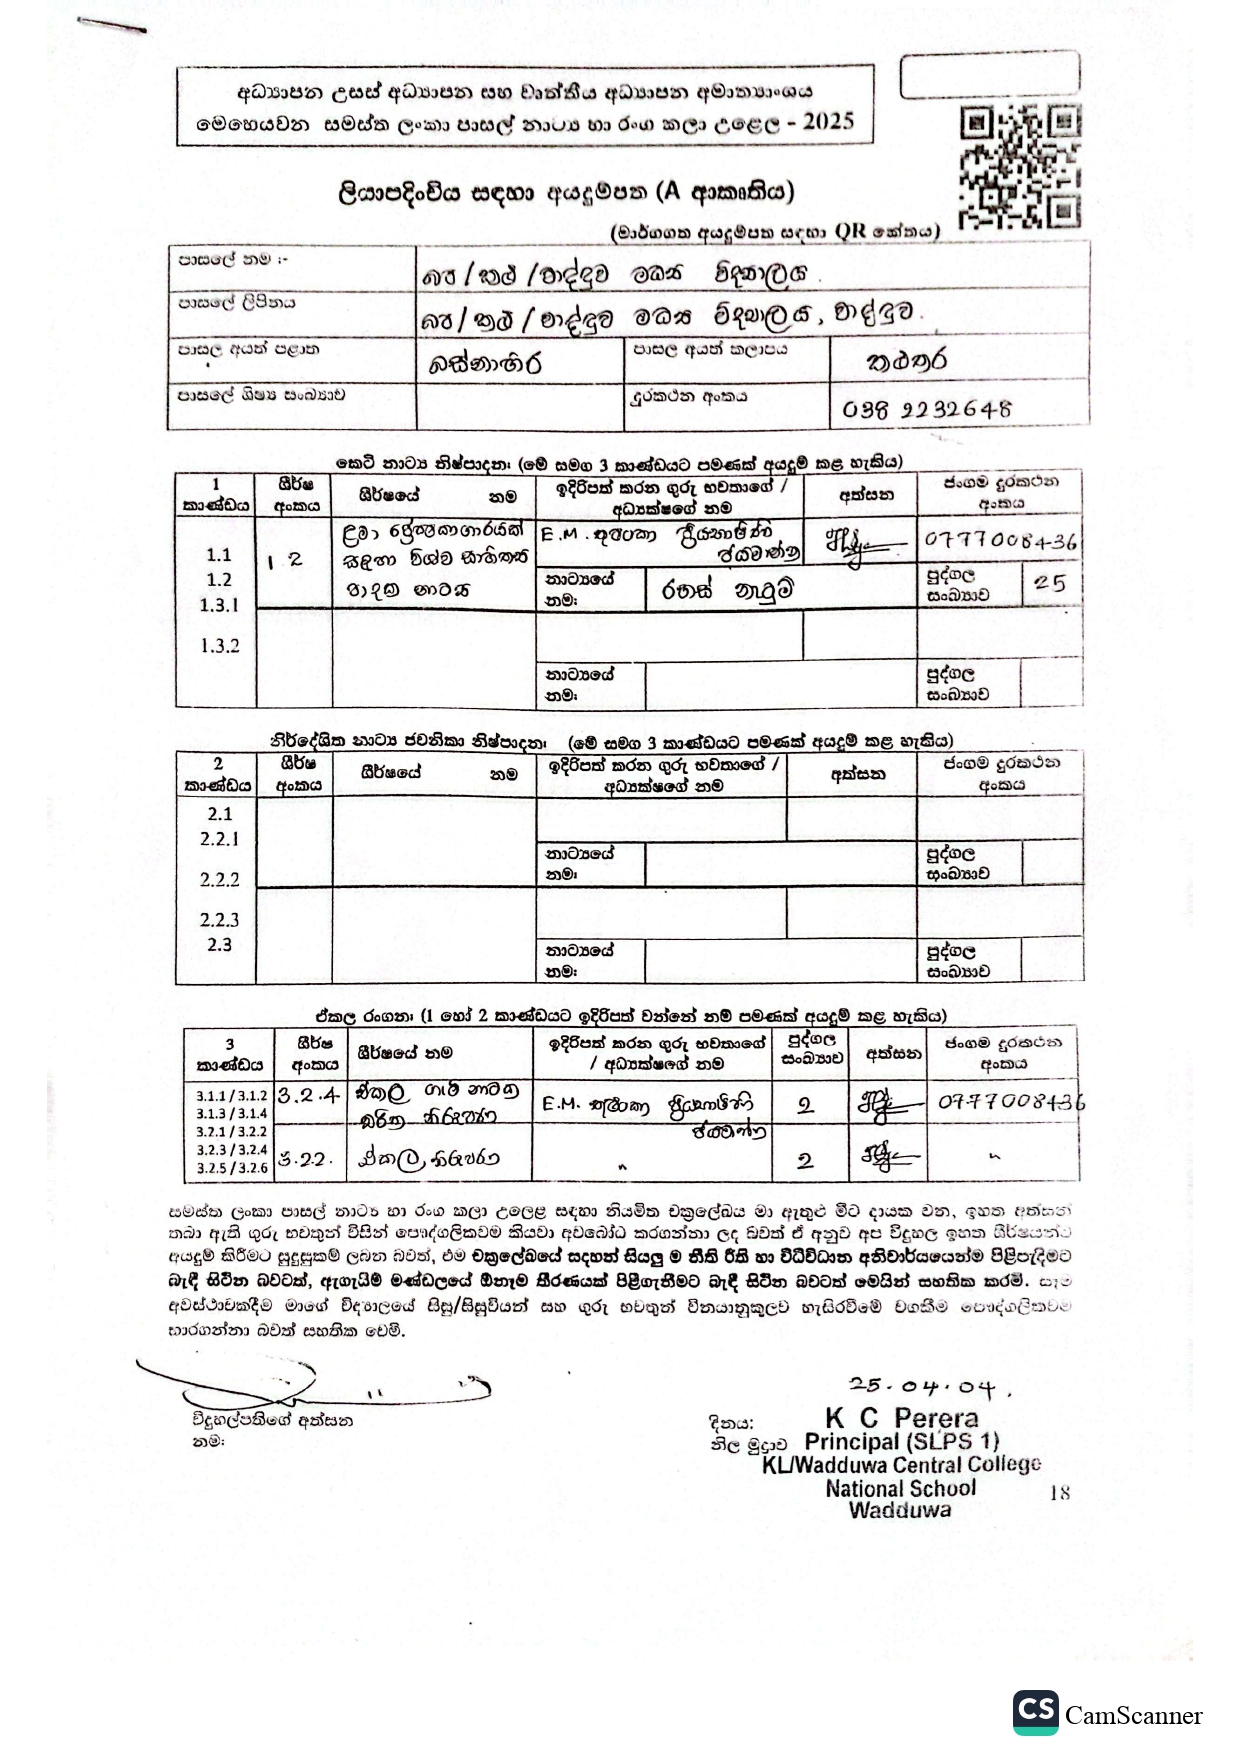 අධ්‍යාපන උසස් අධ්‍යාපන සහ වෘත්තීය අධ්‍යාපන අමාත්‍යාංශය
මෙහෙයවන සමස්ත ලංකා පාසල් නාට්‍ය හා රංග කලා උළෙල - 2025
ලියාපදිංචිය සඳහා අයදුම්පත (A ආකෘතිය)
(මාර්ගගත අයදුම්පත සඳහා QR කේතය)
පාසලේ නම :- බප/කළු/වාද්දුව මධ්‍ය විද්‍යාලය.
පාසලේ ලිපිනය බප/කළු/වාද්දුව මධ්‍ය විද්‍යාලය, වාද්දුව.
පාසල අයත් පළාත බස්නාහිර පාසල අයත් කලාපය කළුතර
පාසලේ ශිෂ්‍ය සංඛ්‍යාව දුරකථන අංකය 038 2232648
කෙටි නාට්‍ය නිෂ්පාදන: (මේ සමග 3 කාණ්ඩයට පමණක් අයදුම් කළ හැකිය)
1 කාණ්ඩය ශීර්ෂ අංකය ශීර්ෂයේ නම ඉදිරිපත් කරන ගුරු භවතාගේ / අධ්‍යක්ෂගේ නම අත්සන ජංගම දුරකථන අංකය
1.1
1.2
1.3.1
1.3.2
1 2 ළමා ප්‍රේක්ෂකාගාරයක් E.M. ප්‍රියභාෂිණී ජයමාන්න 0777008436
සඳහා විශ්ව සාහිත්‍ය
පාදක නාට්‍ය නාට්‍යයේ නම: රහස් නැටුම් පුද්ගල සංඛ්‍යාව 25
නාට්‍යයේ නම: පුද්ගල සංඛ්‍යාව
නිර්දේශිත නාට්‍ය ජවනිකා නිෂ්පාදන: (මේ සමග 3 කාණ්ඩයට පමණක් අයදුම් කළ හැකිය)
2 කාණ්ඩය ශීර්ෂ අංකය ශීර්ෂයේ නම ඉදිරිපත් කරන ගුරු භවතාගේ / අධ්‍යක්ෂගේ නම අත්සන ජංගම දුරකථන අංකය
2.1
2.2.1
2.2.2
2.2.3
2.3
නාට්‍යයේ නම: පුද්ගල සංඛ්‍යාව
නාට්‍යයේ නම: පුද්ගල සංඛ්‍යාව
ඒකල රංගන: (1 හෝ 2 කාණ්ඩයට ඉදිරිපත් වන්නේ නම් පමණක් අයදුම් කළ හැකිය)
3 කාණ්ඩය ශීර්ෂ අංකය ශීර්ෂයේ නම ඉදිරිපත් කරන ගුරු භවතාගේ / අධ්‍යක්ෂගේ නම පුද්ගල සංඛ්‍යාව අත්සන ජංගම දුරකථන අංකය
3.1.1 / 3.1.2
3.1.3 / 3.1.4
3.2.1 / 3.2.2
3.2.3 / 3.2.4
3.2.5 / 3.2.6
3.2.4 ඒකල ගැමි නාටක චරිත නිරූපණ E.M. ප්‍රියභාෂිණී ජයමාන්න 2 0777008436
3.2.2. ඒකල නිරූපණ " 2 "
සමස්ත ලංකා පාසල් නාට්‍ය හා රංග කලා උලෙළ සඳහා නියමිත චක්‍රලේඛය මා ඇතුළු මීට දායක වන, ඉහත අත්සන්
තබා ඇති ගුරු භවතුන් විසින් පෞද්ගලිකවම කියවා අවබෝධ කරගන්නා ලද බවත් ඒ අනුව අප විදුහල ඉහත ශීර්ෂයන්ට
අයදුම් කිරීමට සුදුසුකම් ලබන බවත්, එම චක්‍රලේඛයේ සඳහන් සියලු ම නීති රීති හා විධිවිධාන අනිවාර්යයෙන්ම පිළිපැදීමට
බැඳී සිටින බවටත්, ඇගැයීම් මණ්ඩලයේ ඕනෑම තීරණයක් පිළිගැනීමට බැඳී සිටින බවටත් මෙයින් සහතික කරමි. සෑම
අවස්ථාවකදීම මාගේ විද්‍යාලයේ සිසු/සිසුවියන් සහ ගුරු භවතුන් විනයානුකුලව හැසිරවීමේ වගකීම පෞද්ගලිකවම
භාරගන්නා බවත් සහතික වෙමි.
25.04.04.
විදුහල්පතිගේ අත්සන
නම:
දිනය:
නිල මුද්‍රාව
K C Perera
Principal (SLPS 1)
KL/Wadduwa Central College
National School
Wadduwa
18
CS CamScanner